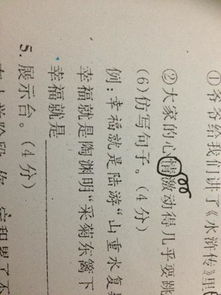 ①爷爷给我们讲了《水浒传》里
②大家的心情激动得几乎要跳
(6)仿写句子。(4分)
例:幸福就是陆游“山重水复
幸福就是陶渊明“采菊东篱下
幸福就是
5. 展示台。(4分)
小学阶段,你 定积累了不